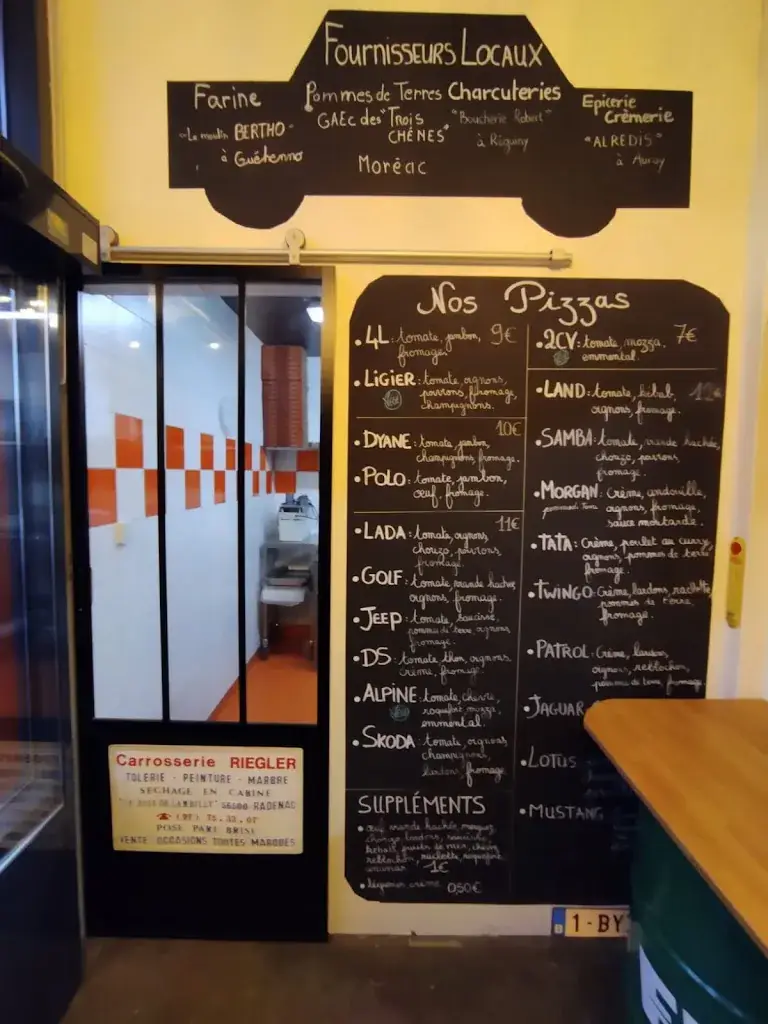 Fournisseurs Locaux
Farine
"Le moulin BERTHO"
à Guéhenno
Pommes de Terres
GAEC des "Trois
CHÊNES"
Moréac
Charcuteries
"Boucherie Robert"
à Réguiny
Epicerie
Crèmerie
"ALREDIS"
à Auray
Nos Pizzas
• 4L: tomate, jambon, 9€
fromage.
• LIGIER: tomate, oignons,
poivrons, fromage,
champignons.
10€
• DYANE: tomate, jambon,
champignons, fromage.
• POLO: tomate, jambon,
oeuf, fromage.
11€
• LADA: tomate, oignons,
chorizo, poivrons,
fromage.
• GOLF: tomate, viande hachée,
oignons, fromage.
• JEEP: tomate, saucisse,
pomme de terre, oignons,
fromage.
• DS: tomate, thon, oignons,
crème, fromage.
• ALPINE: tomate, chèvre,
roquefort, mozza,
emmental.
• SKODA: tomate, oignons,
champignons,
lardons, fromage.
SUPPLÉMENTS
• oeuf, viande hachée, merguez,
chorizo, lardons, saucisse,
kebab, fruits de mer, chèvre,
reblochon, raclette, roquefort,
1€
• légumes crème 0,50€
• 2CV: tomate, mozza, 7€
emmental.
• LAND: tomate, kebab, 12€
oignons, fromage.
• SAMBA: tomate, viande hachée,
chorizo, poivrons,
fromage.
• MORGAN: Crème, andouille,
pommes de Terre oignons, fromage,
sauce moutarde.
• TATA: Crème, poulet au curry,
oignons, pommes de terre
fromage.
• TWINGO: Crème, lardons, raclette,
pommes de terre,
fromage.
• PATROL: Crème, lardons,
oignons, reblochon,
pomme de terre, fromage.
• JAGUAR
• LOTUS
• MUSTANG
Carrosserie RIEGLER
TOLERIE - PEINTURE - MARBRE
SECHAGE EN CABINE
56500 RADENAC
☎ (97) 75.32.07
POSE PARE BRISE
VENTE OCCASIONS TOUTES MARQUES
B 1-BY